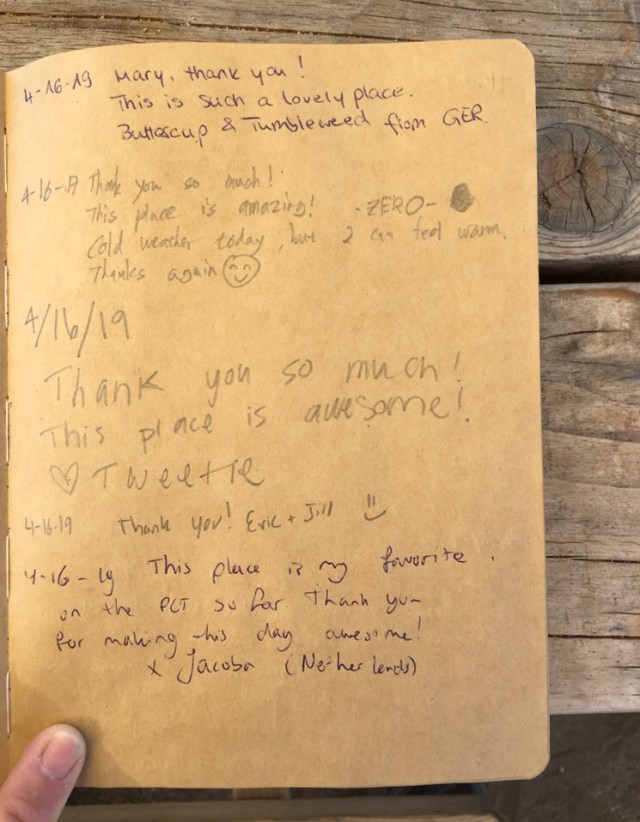 4-16-19 Mary, thank you!
This is such a lovely place.
Buttercup & Tumbleweed from GER.
4-16-19 Thank you so much!
This place is amazing! -ZERO-
Cold weather today, but I can feel warm.
Thanks again
4/16/19
Thank you so much!
This place is awesome!
♡ Tweetie
4-16-19 Thank you! Eric + Jill
4-16-19 This place is my favorite
on the PCT so far. Thank you
for making this day awesome!
x Jacoba (Netherlands)